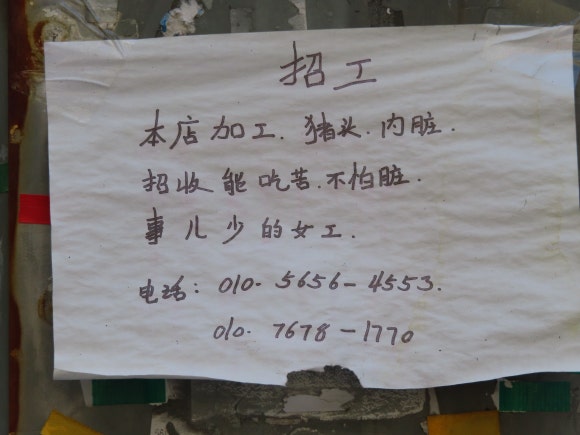 招工
本店加工.猪头.内脏.
招收能吃苦.不怕脏.
事儿少的女工.
电话: 010. 5656-4553.
010. 7678-1770